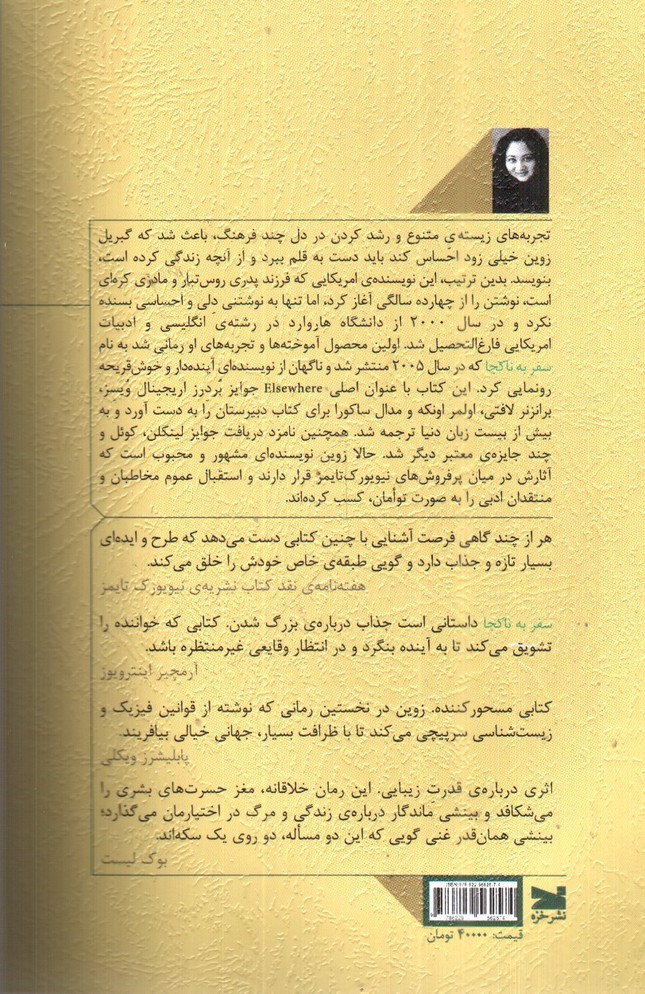 تجربه‌های زیسته‌یِ متنوع و رشد کردن در دل چند فرهنگ، باعث شد که گبریل
زوین خیلی زود احساس کند باید دست به قلم ببرد و از آنچه زندگی کرده است،
بنویسد. بدین ترتیب، این نویسنده‌ی امریکایی که فرزند پدری روس‌تبار و مادری کره‌ای
است، نوشتن را از چهارده سالگی آغاز کرد، اما تنها به نوشتنی دلی و احساسی بسنده
نکرد و در سال ۲۰۰۰ از دانشگاه هاروارد در رشته‌یِ انگلیسی و ادبیات
امریکایی فارغ‌التحصیل شد. اولین محصول آموخته‌ها و تجربه‌های او رمانی شد به نام
سفر به ناکجا که در سال ۲۰۰۵ منتشر شد و ناگهان از نویسنده‌ای آینده‌دار و خوش‌قریحه
رونمایی کرد. این کتاب با عنوان اصلی Elsewhere جوایز بُردرز اریجینال وُیسِز،
برانزنر لافتی، اولمر اونکه و مدال ساکورا برای کتاب دبیرستان را به دست آورد و به
بیش از بیست زبان دنیا ترجمه شد. همچنین نامزد دریافت جوایز لینکلن، کوئل و
چند جایزه‌ی معتبر دیگر شد. حالا زوین نویسنده‌ای مشهور و محبوب است که
آثارش در میان پرفروش‌های نیویورک‌تایمز قرار دارند و استقبال عموم مخاطبان و
منتقدان ادبی را به صورت توأمان، کسب کرده‌اند.
هر از چند گاهی فرصت آشنایی با چنین کتابی دست می‌دهد که طرح و ایده‌ای
بسیار تازه و جذاب دارد و گویی طبقه‌ی خاص خودش را خلق می‌کند.
هفته‌نامه‌ی نقد کتاب نشریه‌ی نیویورک تایمز
سفر به ناکجا داستانی است جذاب درباره‌ی بزرگ شدن. کتابی که خواننده را
تشویق می‌کند تا به آینده بنگرد و در انتظار وقایعی غیرمنتظره باشد.
آرمچیر اینترویوز
کتابی مسحورکننده. زوین در نخستین رمانی که نوشته از قوانین فیزیک و
زیست‌شناسی سرپیچی می‌کند تا با ظرافت بسیار، جهانی خیالی بیافریند.
پابلیشرز ویکلی
اثری درباره‌ی قدرتِ زیبایی. این رمان خلاقانه، مغز حسرت‌های بشری را
می‌شکافد و بینشی ماندگار درباره‌ی زندگی و مرگ در اختیارمان می‌گذارد؛
بینشی همان‌قدر غنی گویی که این دو مسأله، دو روی یک سکه‌اند.
بوک لیست
نشرخزه
قیمت: ۴۰۰۰۰ تومان